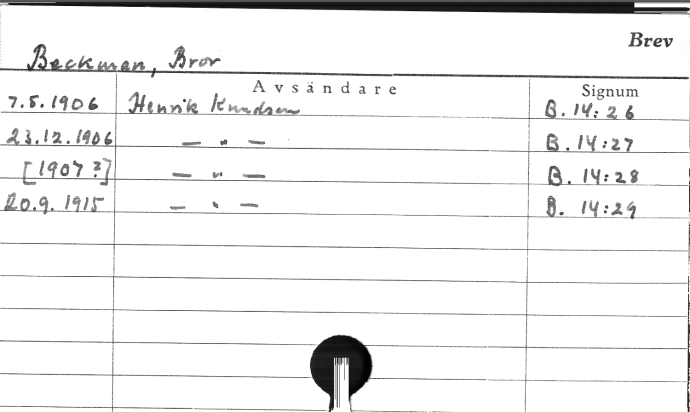 Brev
Beckman, Bror
Avsändare Signum
7.5.1906 Henrik Knudsen B. 14:26
23.12.1906 — " — B. 14:27
[1907?] — " — B. 14:28
20.9.1915 — " — B. 14:29